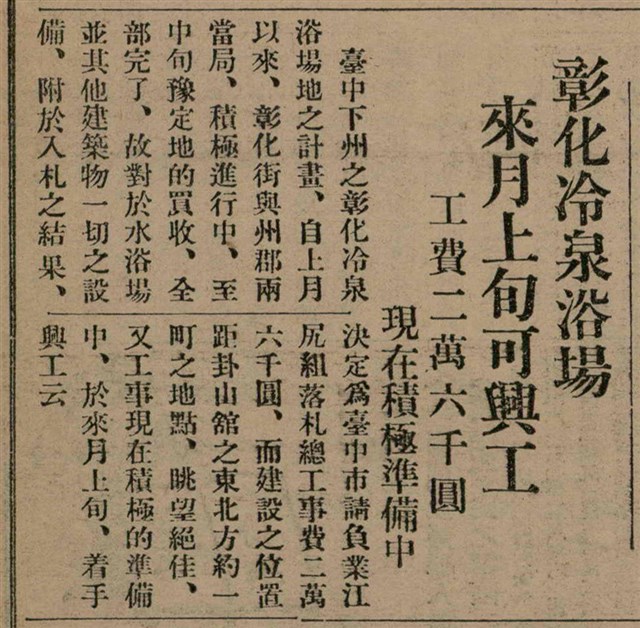 彰化冷泉浴場
來月上旬可興工
工費二萬六千圓
現在積極準備中
臺中下州之彰化冷泉
浴場地之計畫、自上月
以來、彰化街與州郡兩
當局、積極進行中、至
中旬豫定地的買收、全
部完了、故對於水浴場
並其他建築物一切之設
備、附於入札之結果、
決定爲臺中市請負業江
尻組落札總工事費二萬
六千圓、而建設之位置
距卦山舘之東北方約一
町之地點、眺望絕佳、
又工事現在積極的準備
中、於來月上旬、着手
興工云